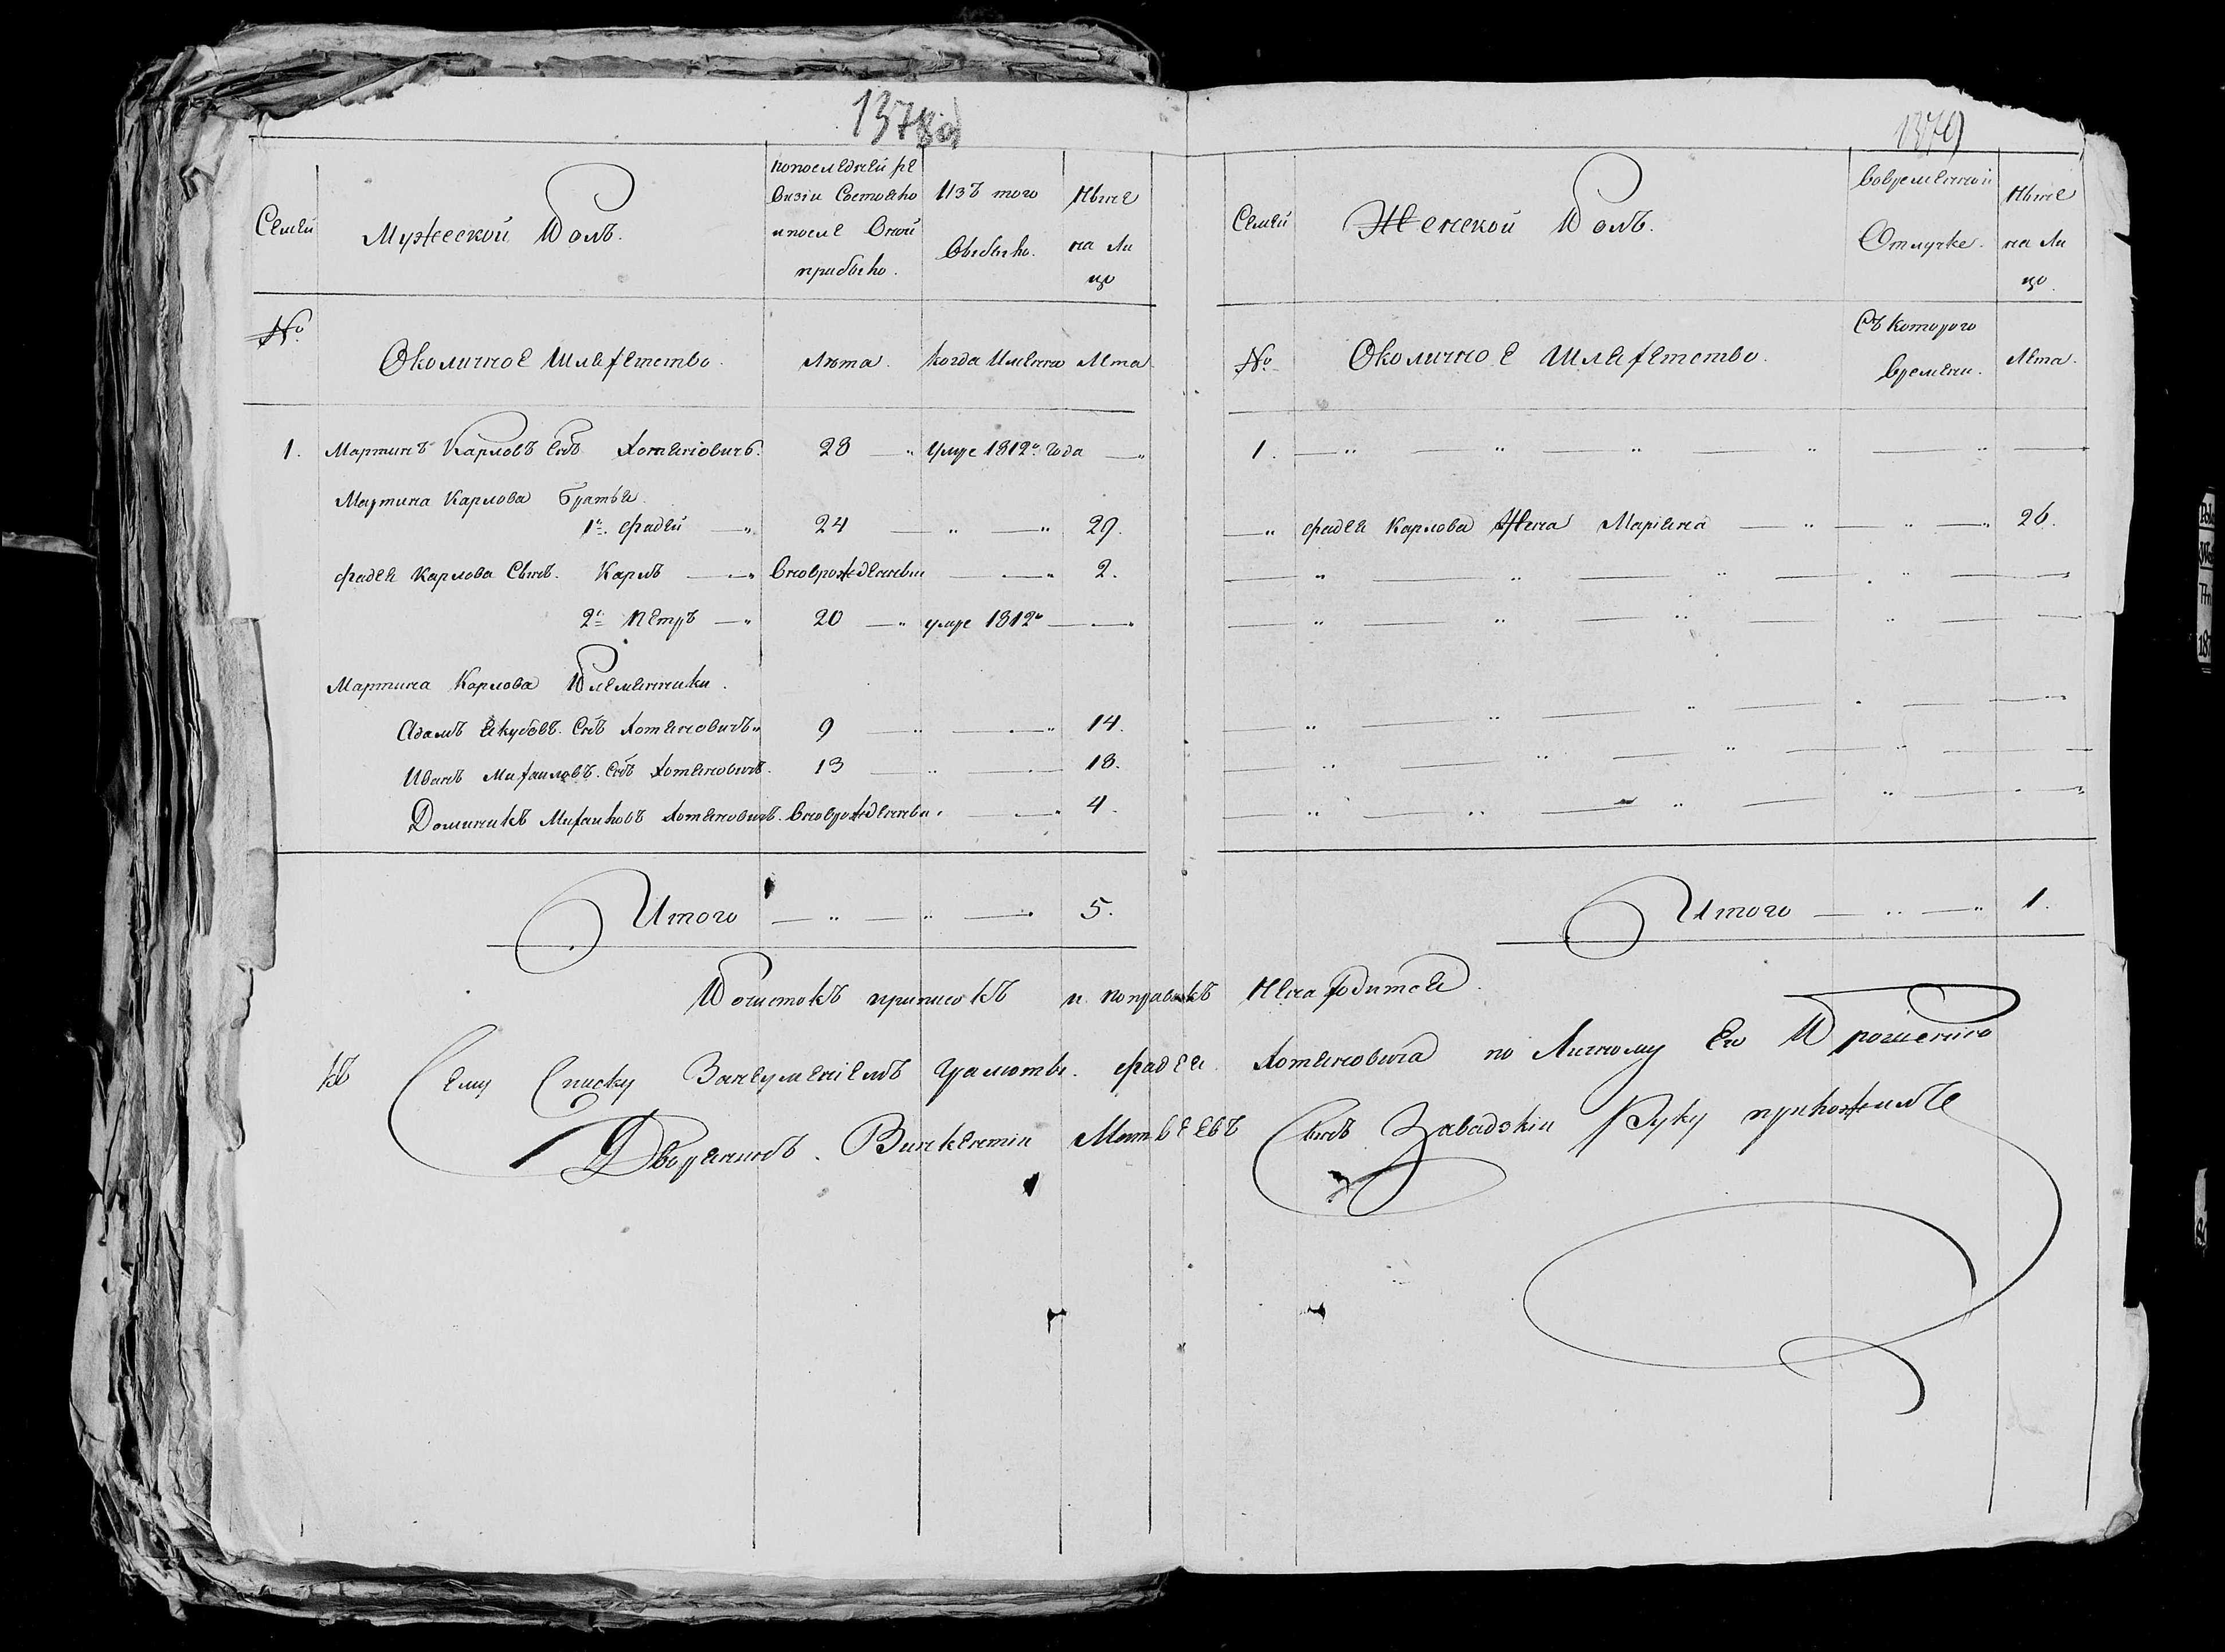 1378
1379
Семьи
Мужеской Полъ.
по последней ре
визіи Состояло
и после Оной
прибыло.
Изъ того
Выбыло.
Ныне
на Ли
цо
№
Околичное Шляхетство.
Лѣта.
когда Имянно
Лета
1. Мартинъ Карловъ Снъ Хотяновичъ. 28 — „ умре 1812го Года — „
Мартина Карлова братья.
1й. Фадей — „ 24 — „ — „ 29.
Фадея Карлова Сынъ. Карлъ — „ вновро­жденный — „ 2.
2й Петръ — „ 20 — „ умре 1812го — „
Мартина Карлова Племянники.
Адамъ Якубовъ. Снъ Хотяновичъ „ 9 „ — „ 14.
Иванъ Михаиловъ. Снъ Хотяновичъ. 13 — „ — 18.
Доминикъ Михаиловъ Хотяновичъ. — „ 4.
Итого — „ — „ — „ 5.
Семьи
Женской Полъ.
Во временной
Отлучке.
Ныне
на Ли
цо.
№
Околичное Шляхетство.
Съ которого
Времени.
Лета.
1. — „ — „ — „ — „ — „ —
— „ Фадея Карлова Жена Маріяна — „ — „ — „ 26.
Итого — „ — „ 1.
Почистокъ приписокъ и поправокъ Ненаходится.
Къ Сему Списку Занеуменіемъ грамоты. Фадея Хотяновича по Личному Его Прошенію
Дворянинъ. Винкентий Матвеевъ Сынъ Завадзкий Руку приложилъ